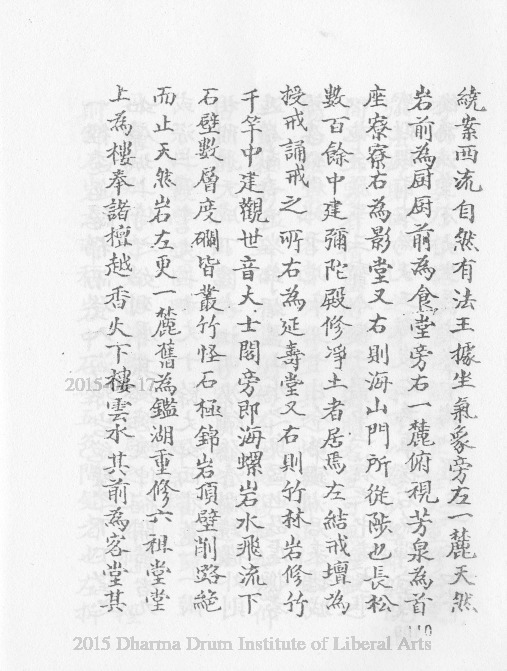 繞案西流自然有法王據坐氣象旁左一麓天然
岩前為厨厨前為食堂旁右一麓俯視芳泉為首
座寮寮右為影堂又右則海山門所從陟也長松
數百餘中建彌陀殿修淨土者居焉左結戒壇為
授戒誦戒之所右為延壽堂又右則竹林岩修竹
千竿中建觀世音大士閣旁即海螺岩水飛流下
石壁數層度礀皆叢竹怪石極錦岩頂壁削路絕
而止天然岩左更一麓舊為鑑湖重修六祖堂堂
上為樓奉諸檀越香火下樓雲水其前為客堂其
110
2015 Dharma Drum Institute of Liberal Arts